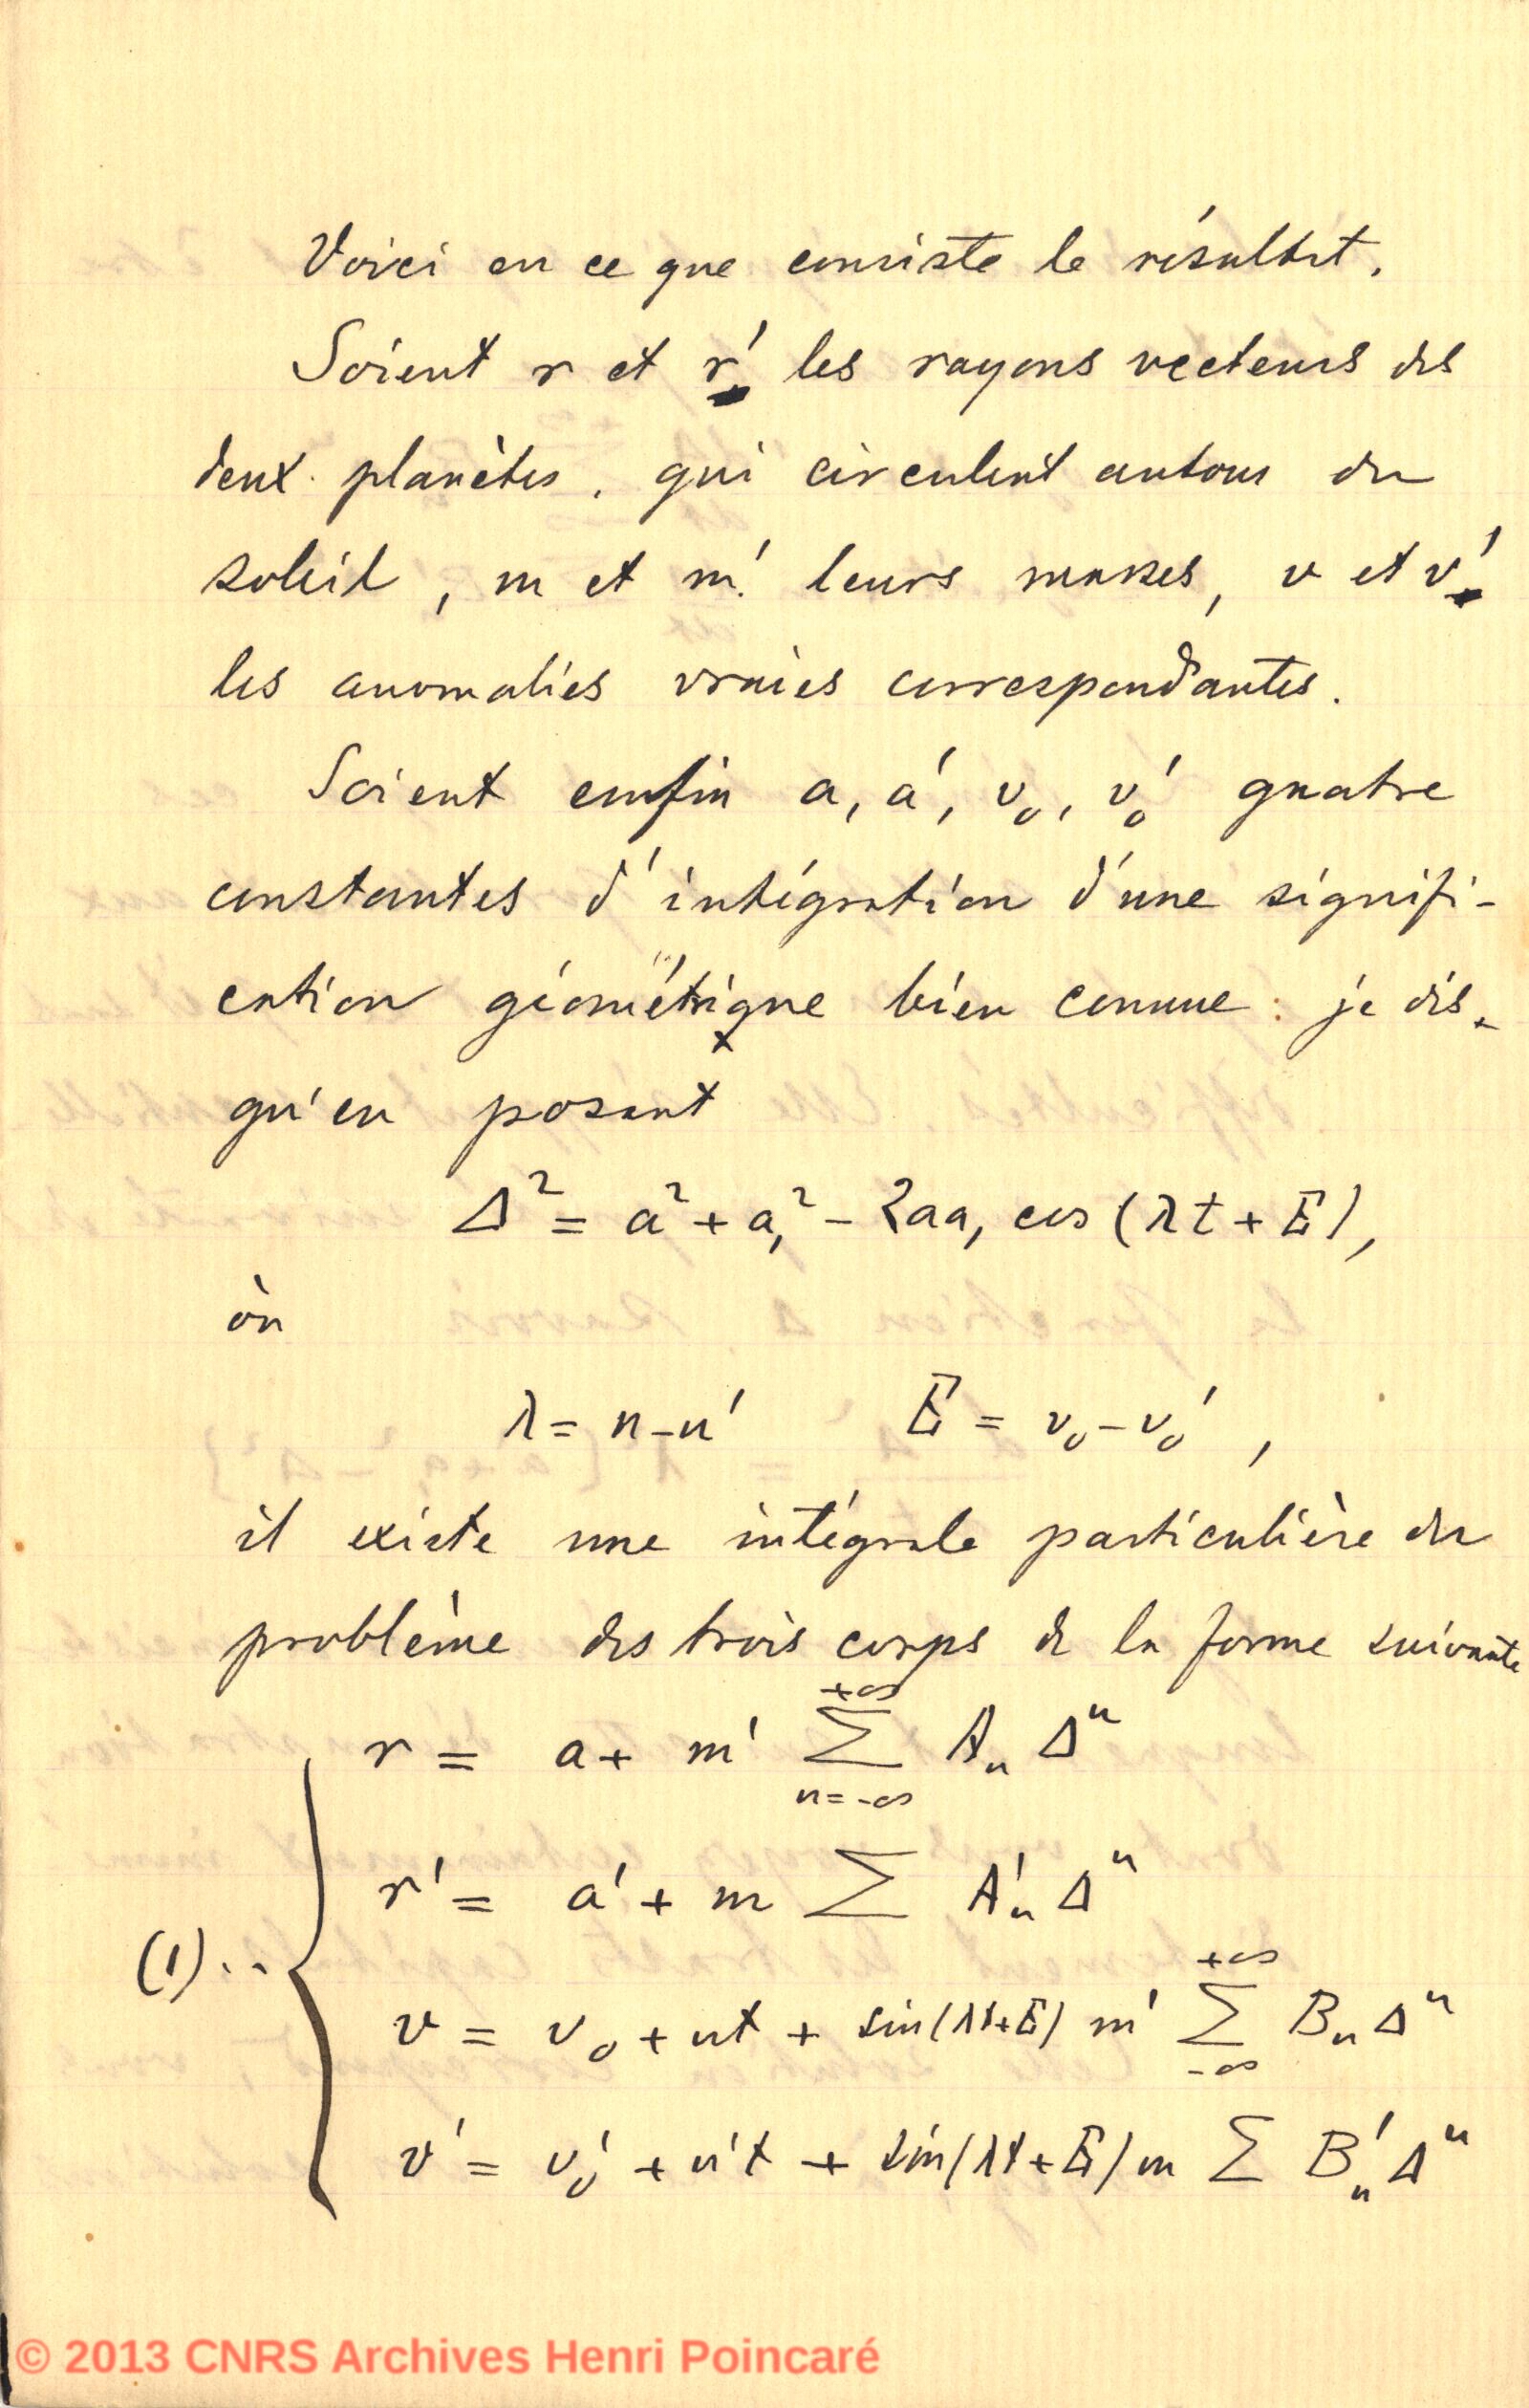 Voici en ce que consiste le résultat.
Soient r et r' les rayons vecteurs des
deux planètes, qui circulent autour du
soleil, m et m' leurs masses, v et v'
les anomalies vraies correspondantes.
Soient enfin a, a', v₀, v₀' quatre
constantes d'intégration d'une signifi-
cation géométrique bien connue : je dis
qu'en posant
Δ² = a² + a,² - 2aa, cos (λt + E),
où
λ = n - n' E = v₀ - v₀' ,
il existe une intégrale particulière du
problème des trois corps de la forme suivante
r = a + m' \sum_{n=-∞}^{+∞} Aₙ Δⁿ
r' = a' + m ∑ A'ₙ Δⁿ
(1)..
v = v₀ + nt + sin(λt+E) m' \sum_{-∞}^{+∞} Bₙ Δⁿ
v' = v₀' + n't + sin(λt+E) m ∑ B'ₙ Δⁿ
© 2013 CNRS Archives Henri Poincaré